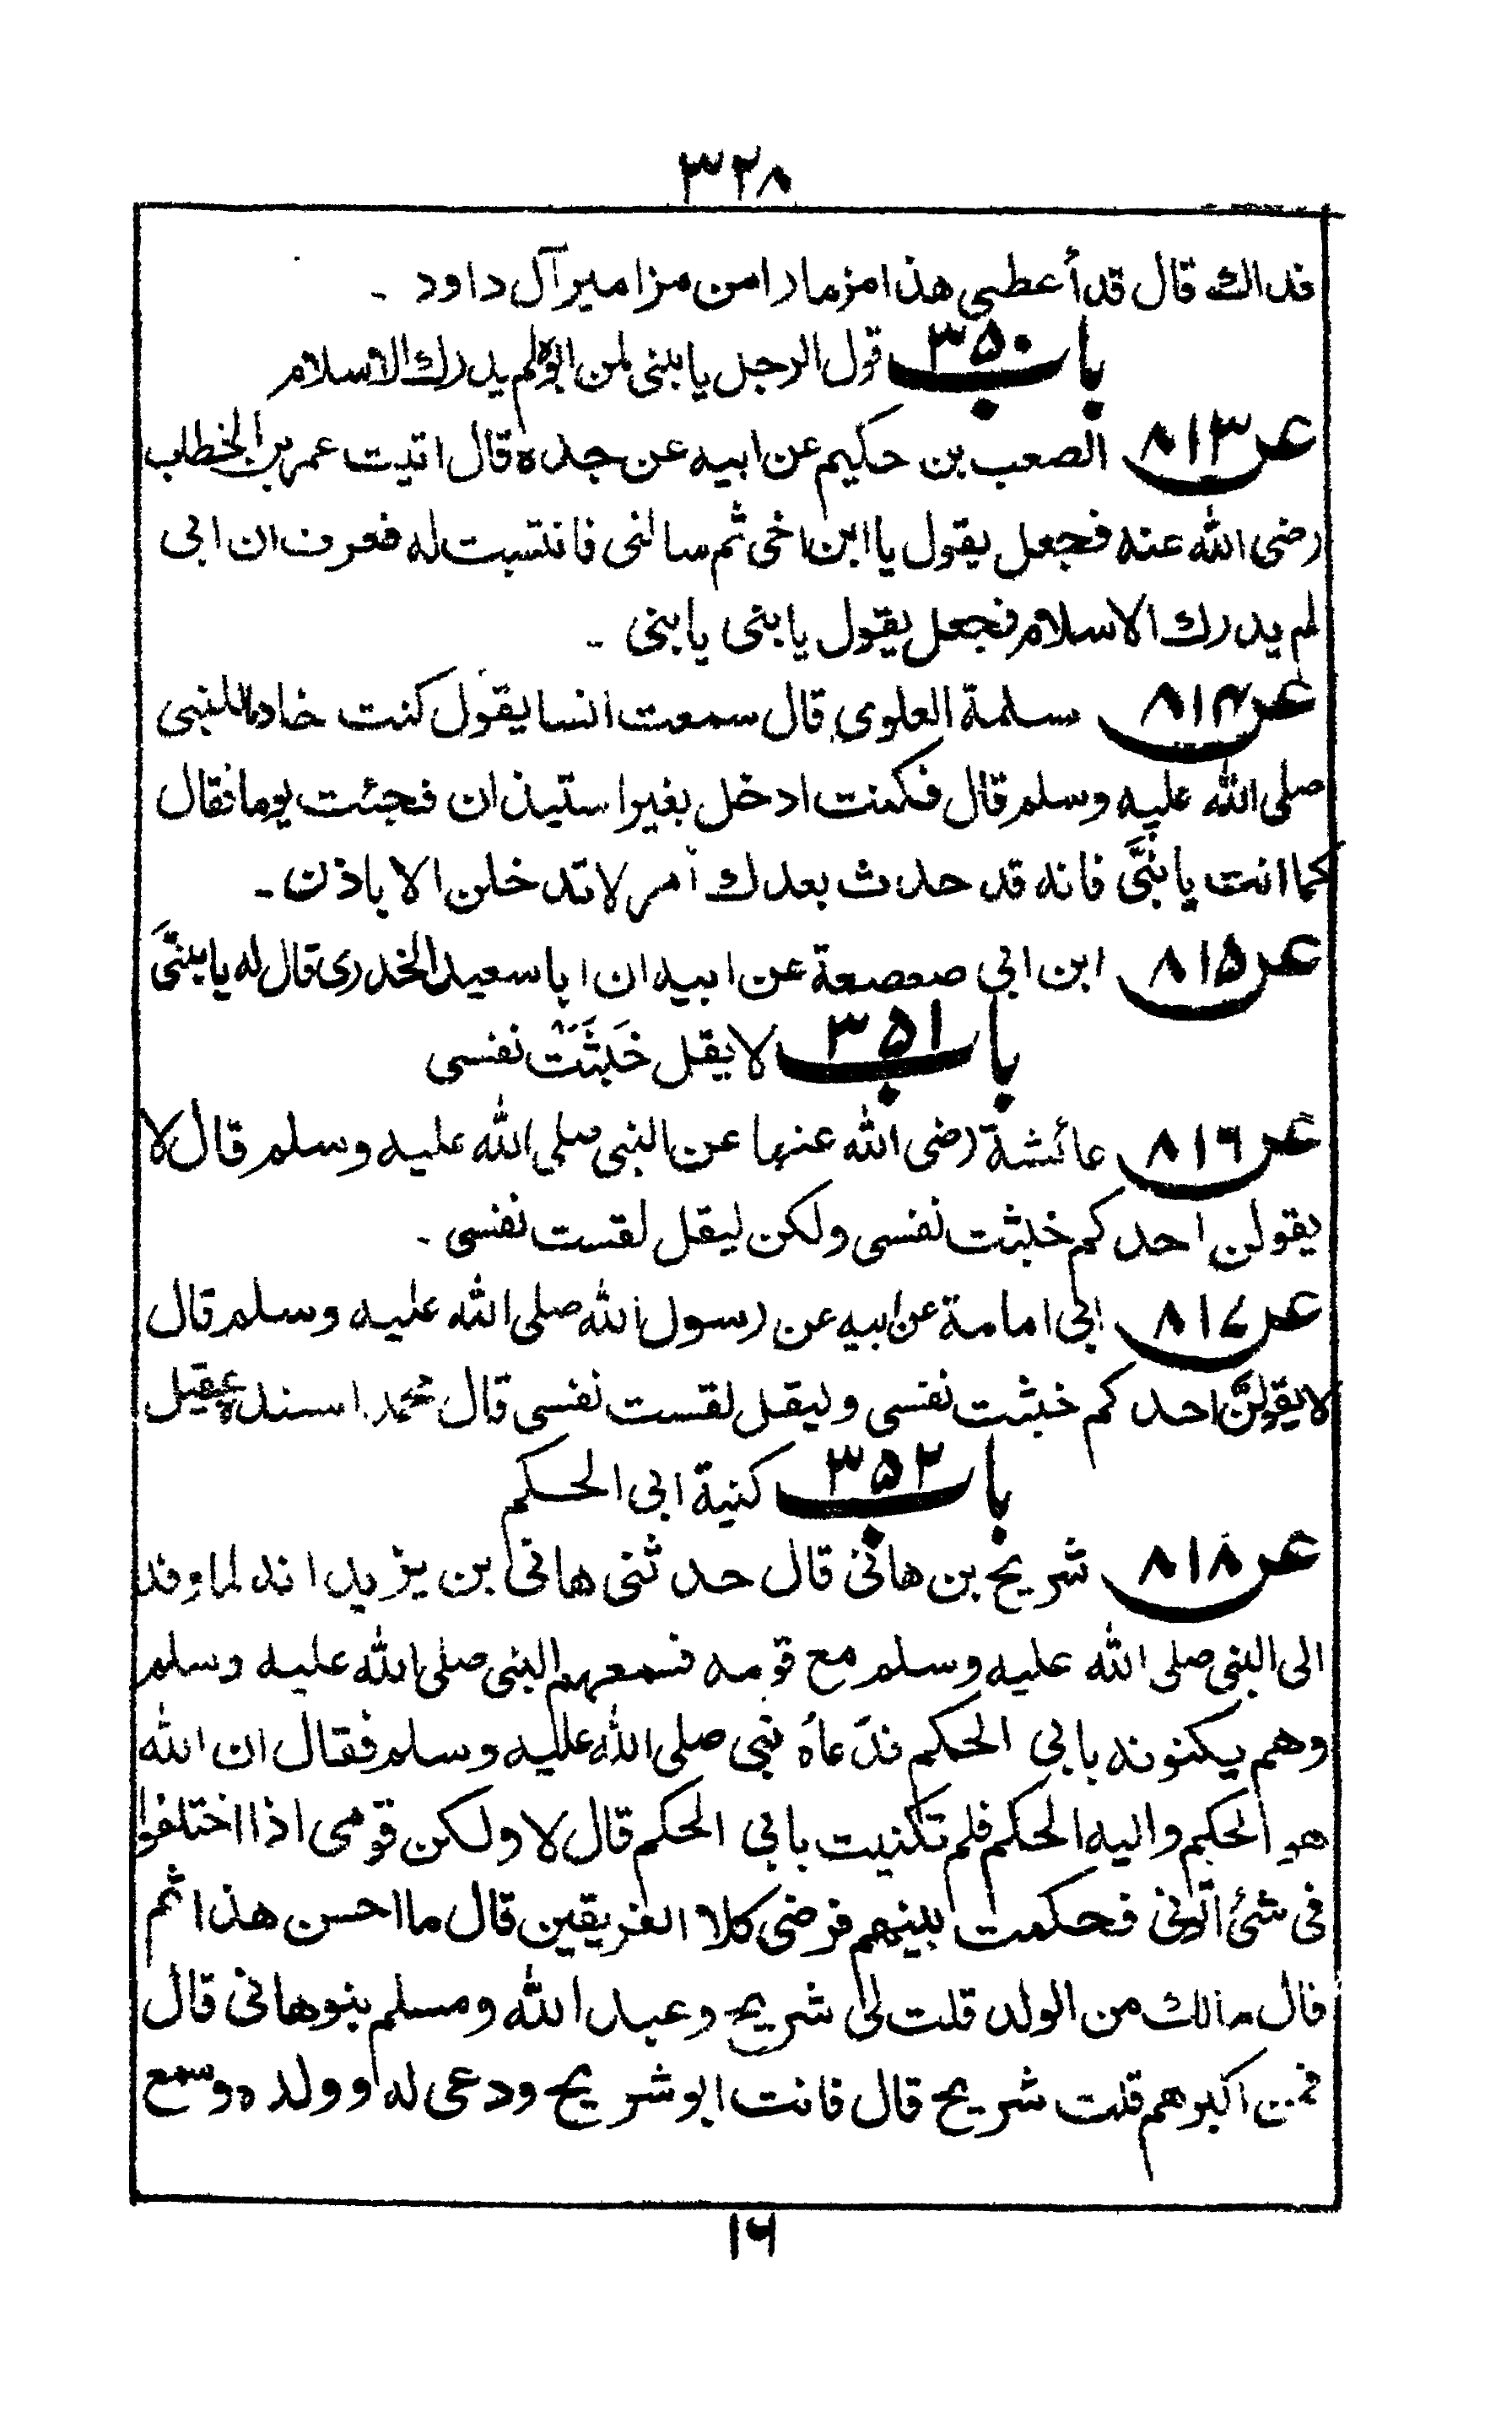 ٣٢٨
فداك قال قد أعطى هذا مزمارا من مزامير آل داود ـ
باب ٣٥٠ قول الرجل يا بنى لمن ابوه لم يدرك الاسلام
عن ٨١٣ الصعب بن حكيم عن ابيه عن جده قال اتيت عمر بن الخطاب
رضى الله عنه فجعل يقول يا ابن اخى ثم سالنى فانتسبت له فعرف ان ابى
لم يدرك الاسلام فجعل يقول يا بنى يا بنى ـ
عن ٨١٤ سلمة العلوى قال سمعت انسا يقول كنت خادما للنبى
صلى الله عليه وسلم قال فكنت ادخل بغير استيذان فجئت يوما فقال
كما انت يا بنىَّ فانه قد حدث بعدك أمر لا تدخلن الا باذن ـ
عن ٨١٥ ابن ابى صعصعة عن ابيه ان ابا سعيد الخدرى قال له يا بنىَّ
باب ٣٥١ لا يقل خَبُثَتْ نفسى
عن ٨١٦ عائشة رضى الله عنها عن النبى صلى الله عليه وسلم قال لا
يقولن احدكم خبثت نفسى ولكن ليقل لقست نفسى ـ
عن ٨١٧ ابى امامة عن ابيه عن رسول الله صلى الله عليه وسلم قال
لا يقولنَّ احدكم خبثت نفسى وليقل لقست نفسى قال محمد اسنده عقيل
باب ٣٥٢ كنية ابى الحكم
عن ٨١٨ شريح بن هانئ قال حدثنى هانى بن يزيد انه لما وفد
الى النبى صلى الله عليه وسلم مع قومه فسمعهم النبى صلى الله عليه وسلم
وهم يكنونه بابى الحكم فدَعاهُ نبى صلى الله عليه وسلم فقال ان الله
هو الحكم واليه الحكم فلم تكنيت بابى الحكم قال لا ولكن قومى اذا اختلفوا
فى شئ أتونى فحكمت بينهم فرضى كلا الفريقين قال ما احسن هذا ثم
قال مالك من الولد قلت لى شريح وعبد الله ومسلم بنو هانى قال
فمن اكبرهم قلت شريح قال فانت ابو شريح ودعى له وولده وسمع
١٦